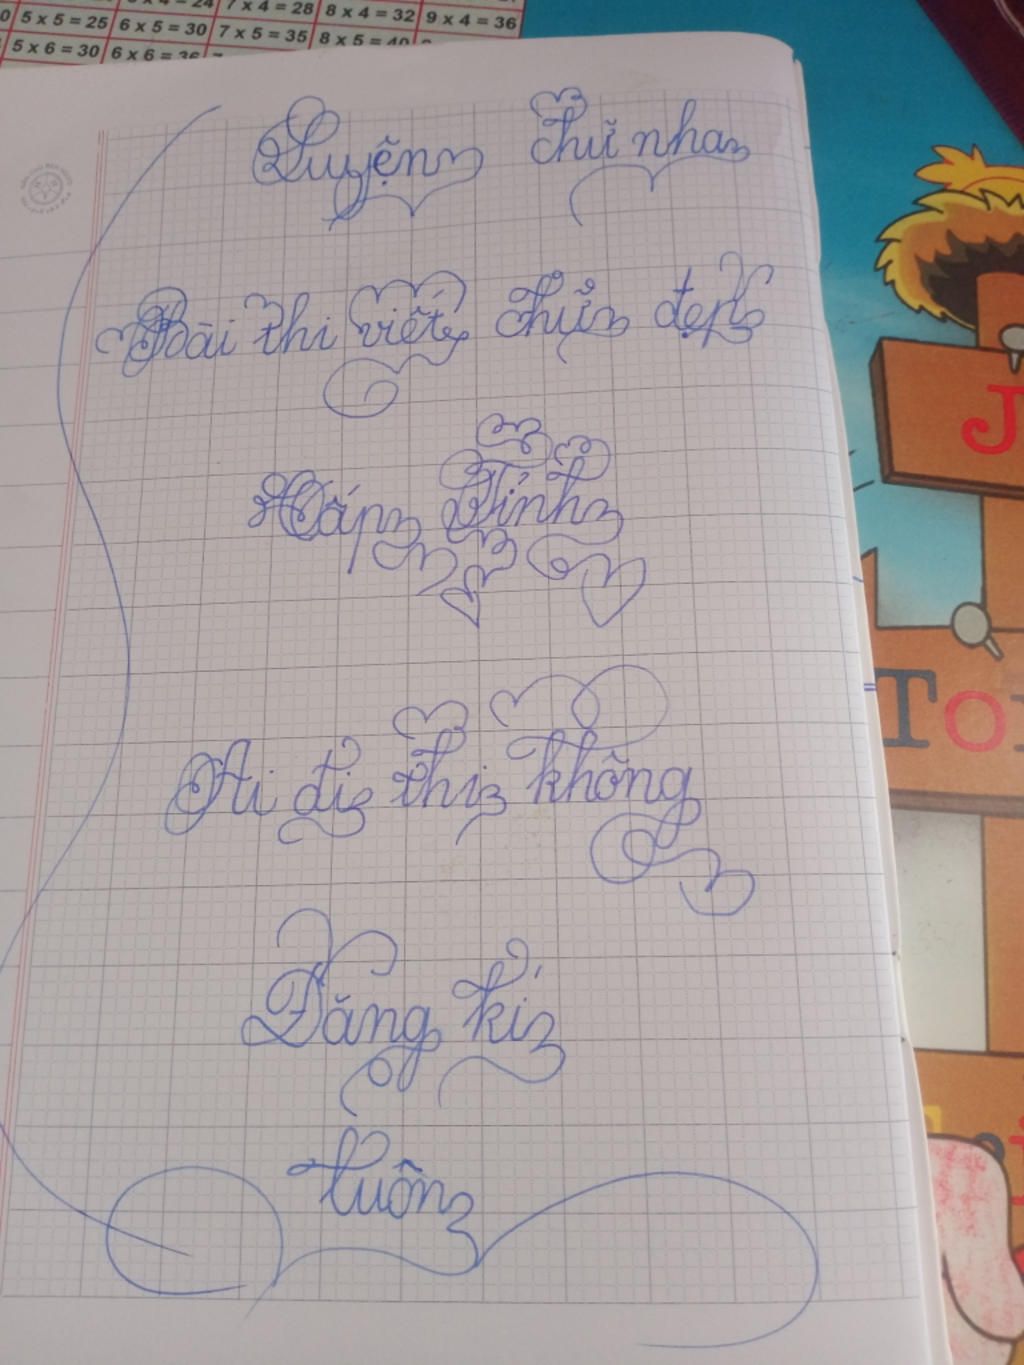 7 x 4 = 28 8 x 4 = 32 9 x 4 = 36
5 x 5 = 25 6 x 5 = 30 7 x 5 = 35 8 x 5 = 40
5 x 6 = 30 6 x 6 = 36
Luyện chữ nha
Bài thi viết chữ đẹp
Cấp Tỉnh
Ai đi thi không
Đăng kí
luôn
J
To